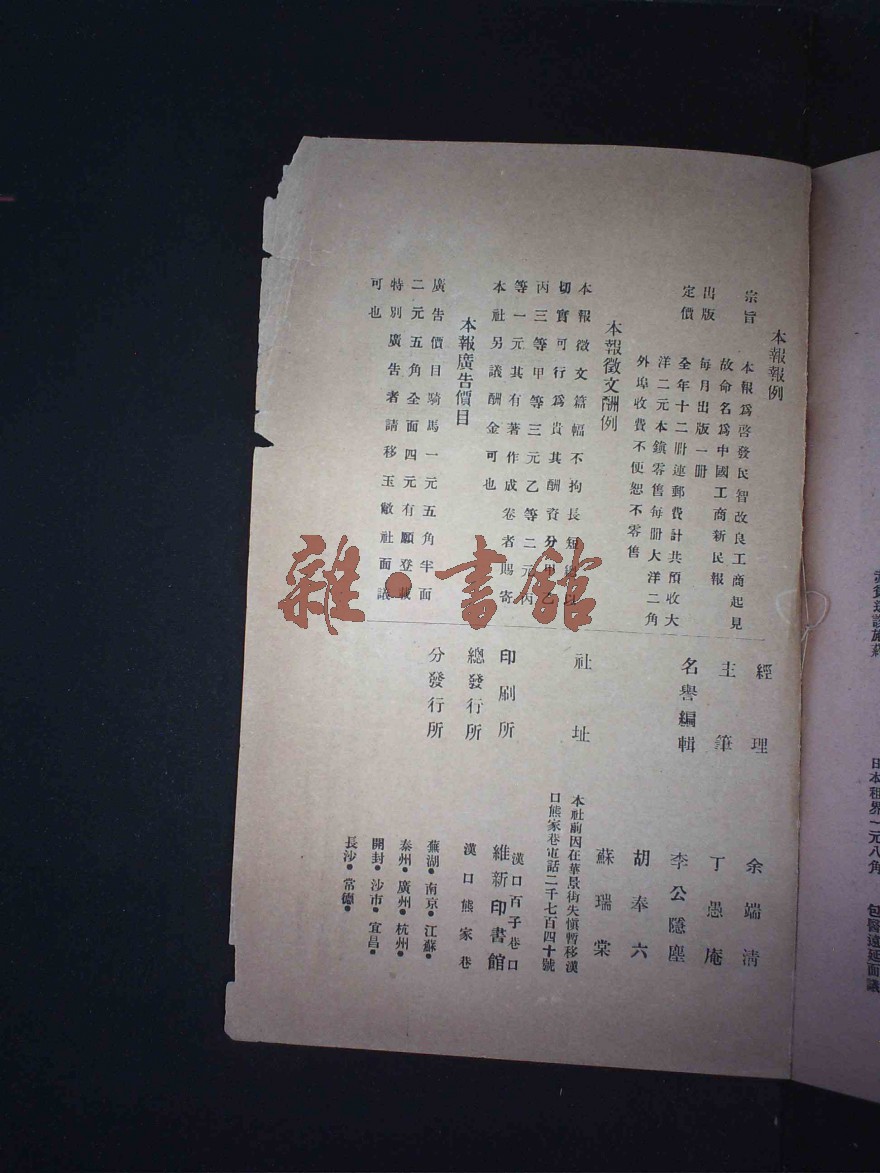 本報報例
宗旨　本報爲啓發民智改良工商起見
故命名爲中國工商新民報
出版　每月出版一册
定價　全年十二册連郵費計共預收大
洋二元本鎭零售每册大洋二角
外埠收費不便恕不零售
本報徵文酬例
本報徵文篇幅不拘長短
切實可行爲貴其酬資分甲乙
丙三等甲等三元乙等二元丙
等一元其有著作成卷者賜寄
本社另議酬金可也
本報廣告價目
廣告價目騎馬一元五角半面
二元五角全面四元有願登載
特別廣告者請移玉敝社面議
可也
經理　余端淸
主筆　丁愚庵
名譽編輯　李公隱塵
胡奉六
蘇瑞棠
社址　本社前因在華景街失愼暫移漢
口熊家巷電話二千七百四十號
印刷所　漢口百子巷口
維新印書館
總發行所　漢口熊家巷
分發行所　蕪湖●南京●江蘇●
泰州●廣州●杭州●
開封●沙市●宜昌●
長沙●常德●
雜·書館
日本租界一元八角　包醫遠近面議